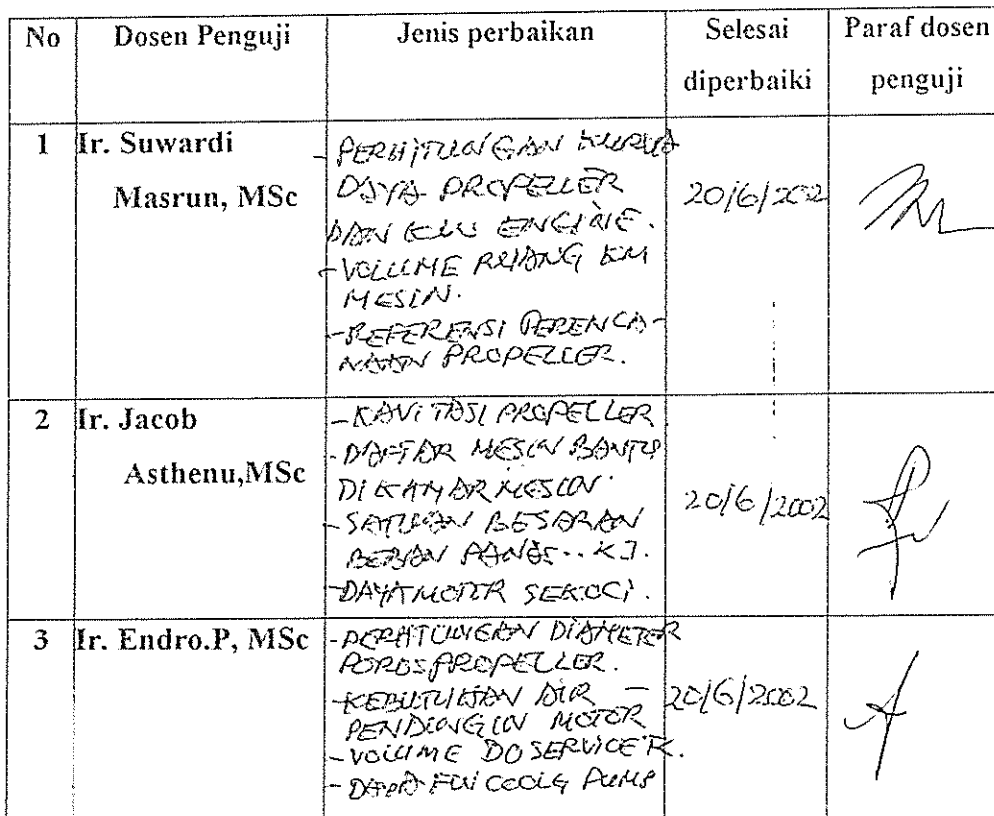 No Dosen Penguji Jenis perbaikan Selesai diperbaiki Paraf dosen penguji
1 Ir. Suwardi Masrun, MSc
- PERHITUNGAN KURVA
DAYA PROPELLER
DAN ENGINE.
- VOLUME RUANG KM
MESIN.
- REFERENSI PERENCA-
NAAN PROPELLER.
20/6/2002
2 Ir. Jacob Asthenu,MSc
- KAVITASI PROPELLER
- DAFTAR MESIN BANTU
DI KAMAR MESIN.
- SATUAN BESARAN
BEBAN PANAS.. KJ.
- DAYA MOTOR SEKOCI.
20/6/2002
3 Ir. Endro.P, MSc
- PERHITUNGAN DIAMETER
POROS PROPELLER.
- KEBUTUHAN AIR
PENDINGIN MOTOR
- VOLUME DO SERVICE TK.
- DAYA FW COOLG PUMP
20/6/2002